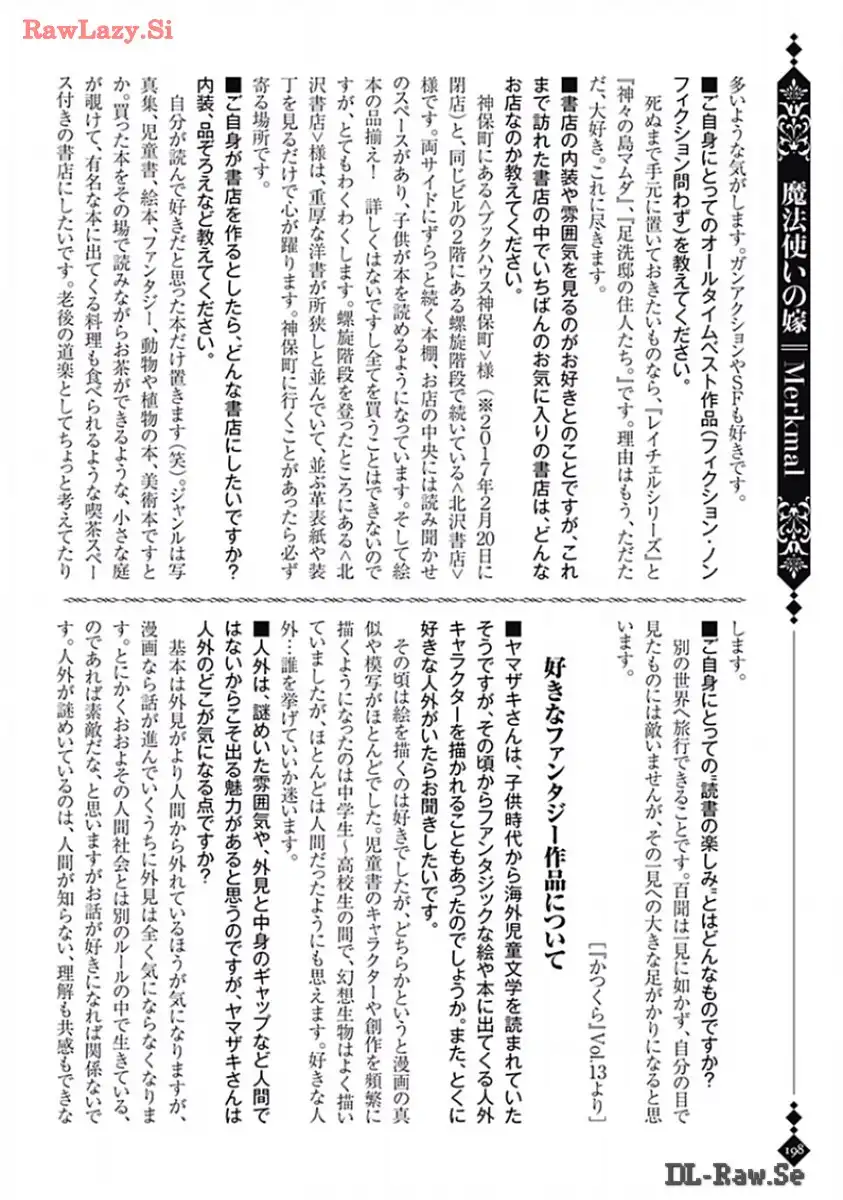 RawLazy.Si
魔法使いの嫁 ║ Merkmal
多いような気がします。ガンアクションやSFも好きです。
■ご自身にとってのオールタイムベスト作品(フィクション・ノン
フィクション問わず)を教えてください。
死ぬまで手元に置いておきたいものなら、『レイチェルシリーズ』と
『神々の島マムダ』、『足洗邸の住人たち。』です。理由はもう、ただた
だ、大好き。これに尽きます。
■書店の内装や雰囲気を見るのがお好きとのことですが、これ
まで訪れた書店の中でいちばんのお気に入りの書店は、どんな
お店なのか教えてください。
神保町にある<ブックハウス神保町>様(※2017年2月20日に
閉店)と、同じビルの2階にある螺旋階段で続いている<北沢書店>
様です。両サイドにずらっと続く本棚、お店の中央には読み聞かせ
のスペースがあり、子供が本を読めるようになっています。そして絵
本の品揃え! 詳しくはないですし全てを買うことはできないので
すが、とてもわくわくします。螺旋階段を登ったところにある<北
沢書店>様は、重厚な洋書が所狭しと並んでいて、並ぶ革表紙や装
丁を見るだけで心が躍ります。神保町に行くことがあったら必ず
寄る場所です。
■ご自身が書店を作るとしたら、どんな書店にしたいですか?
内装、品ぞろえなど教えてください。
自分が読んで好きだと思った本だけ置きます(笑)。ジャンルは写
真集、児童書、絵本、ファンタジー、動物や植物の本、美術本ですと
か。買った本をその場で読みながらお茶ができるような、小さな庭
が覗けて、有名な本に出てくる料理も食べられるような喫茶スペー
ス付きの書店にしたいです。老後の道楽としてちょっと考えてたり
します。
■ご自身にとっての“読書の楽しみ”とはどんなものですか?
別の世界へ旅行できることです。百聞は一見に如かず、自分の目で
見たものには敵いませんが、その一見への大きな足がかりになると思
います。
[『かつくら』Vol.13より]
好きなファンタジー作品について
■ヤマザキさんは、子供時代から海外児童文学を読まれていた
そうですが、その頃からファンタジックな絵や本に出てくる人外
キャラクターを描かれることもあったのでしょうか。また、とくに
好きな人外がいたらお聞きしたいです。
その頃は絵を描くのは好きでしたが、どちらかというと漫画の真
似や模写がほとんどでした。児童書のキャラクターや創作を頻繁に
描くようになったのは中学生~高校生の間で、幻想生物はよく描い
ていましたが、ほとんどは人間だったようにも思えます。好きな人
外…誰を挙げていいか迷います。
■人外は、謎めいた雰囲気や、外見と中身のギャップなど人間で
はないからこそ出る魅力があると思うのですが、ヤマザキさんは
人外のどこが気になる点ですか?
基本は外見がより人間から外れているほうが気になりますが、
漫画なら話が進んでいくうちに外見は全く気にならなくなりま
す。とにかくおおよその人間社会とは別のルールの中で生きている、
のであれば素敵だな、と思いますがお話が好きになれば関係ないで
す。人外が謎めいているのは、人間が知らない、理解も共感もできな
198
DL-Raw.Se